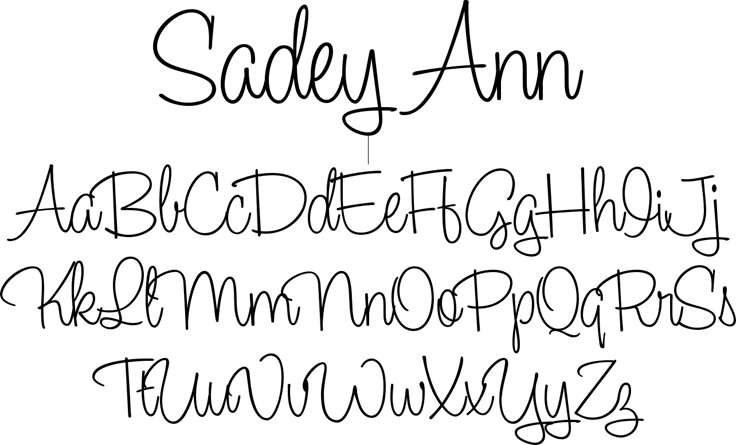 Sadey Ann
AaBbCcDdEeFfGgHhIiJj
KkLlMmNnOoPpQqRrSs
TtUuVvWwXxYyZz